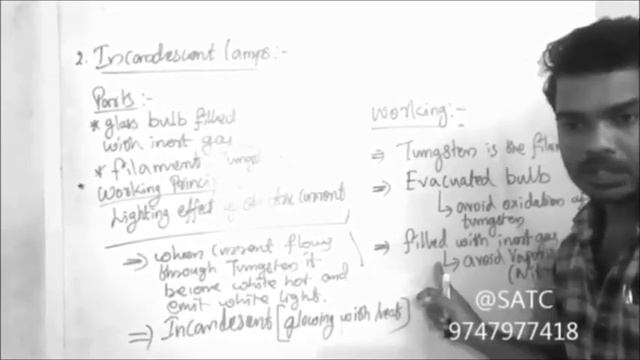 2. Incandescent Lamps:-
Parts:-
* glass bulb filled
with inert gas
* filament
• Working Princi
Lighting effect of current
⇒ when current flows
through Tungsten it
become white hot and
emit white light.
⇒ Incandesent [glowing with heat]
Working:-
⇒ Tungsten is the fila
⇒ Evacuated bulb
↳ avoid oxidation of
tungsten
⇒ filled with inert gas
↳ avoid Vapori
(Nit
@SATC
9747977418